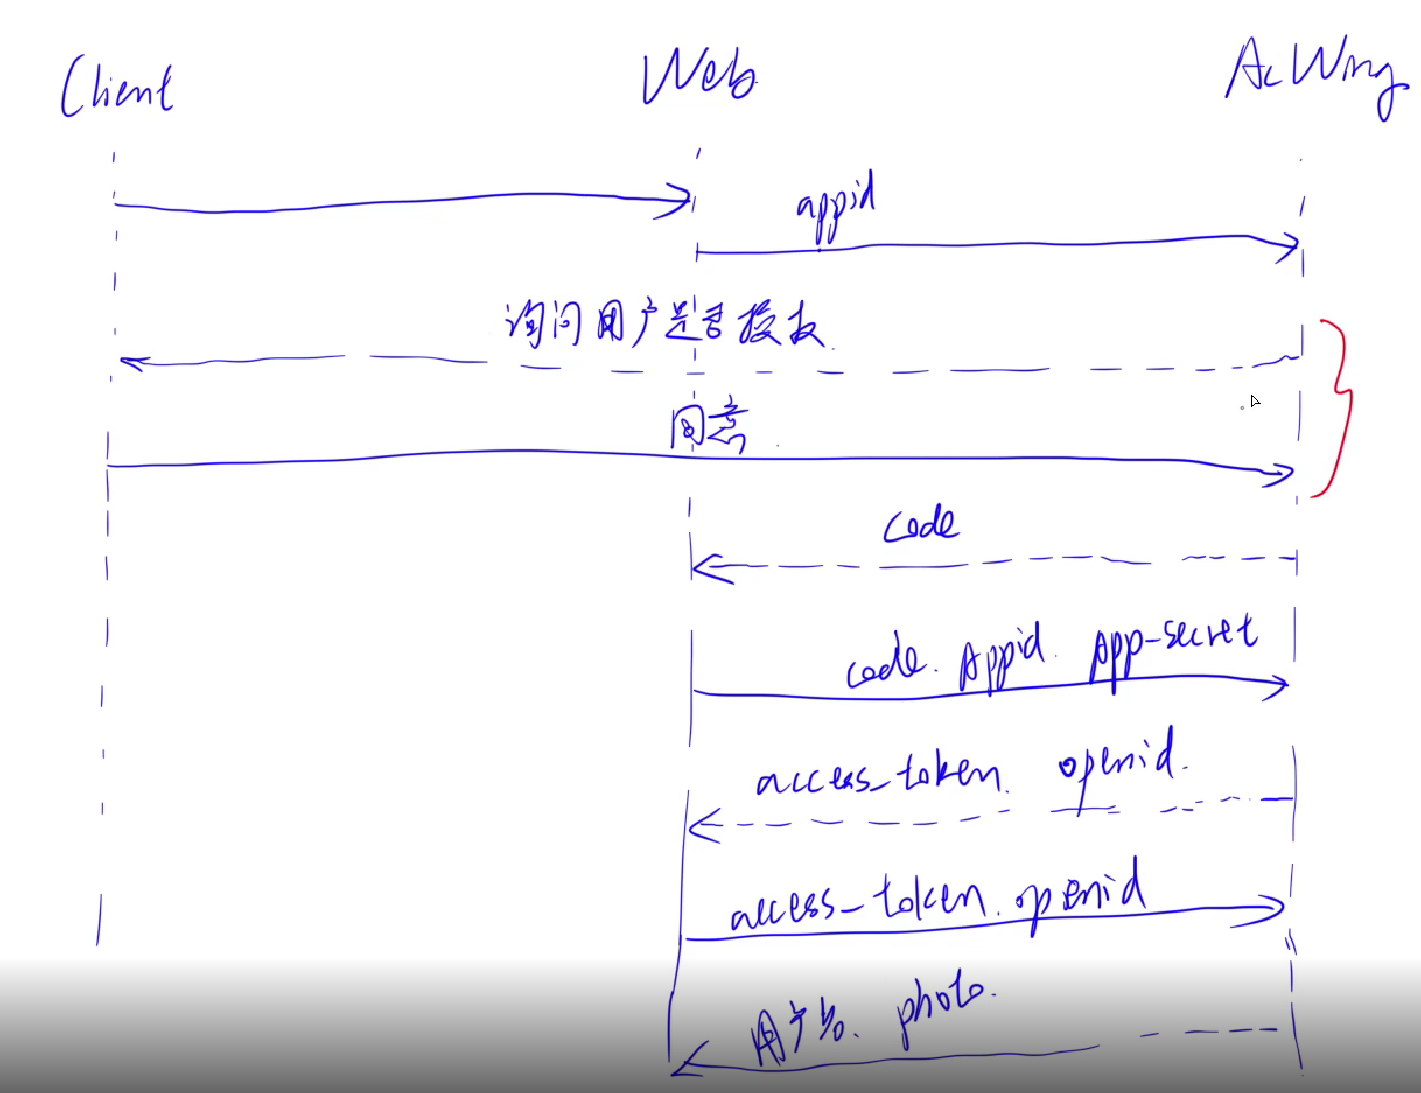 Client Web AcWing
appid
询问用户是否授权
同意
code
code. Appid. App-secret
access_token. openid.
access_token. openid
用户名. photo.